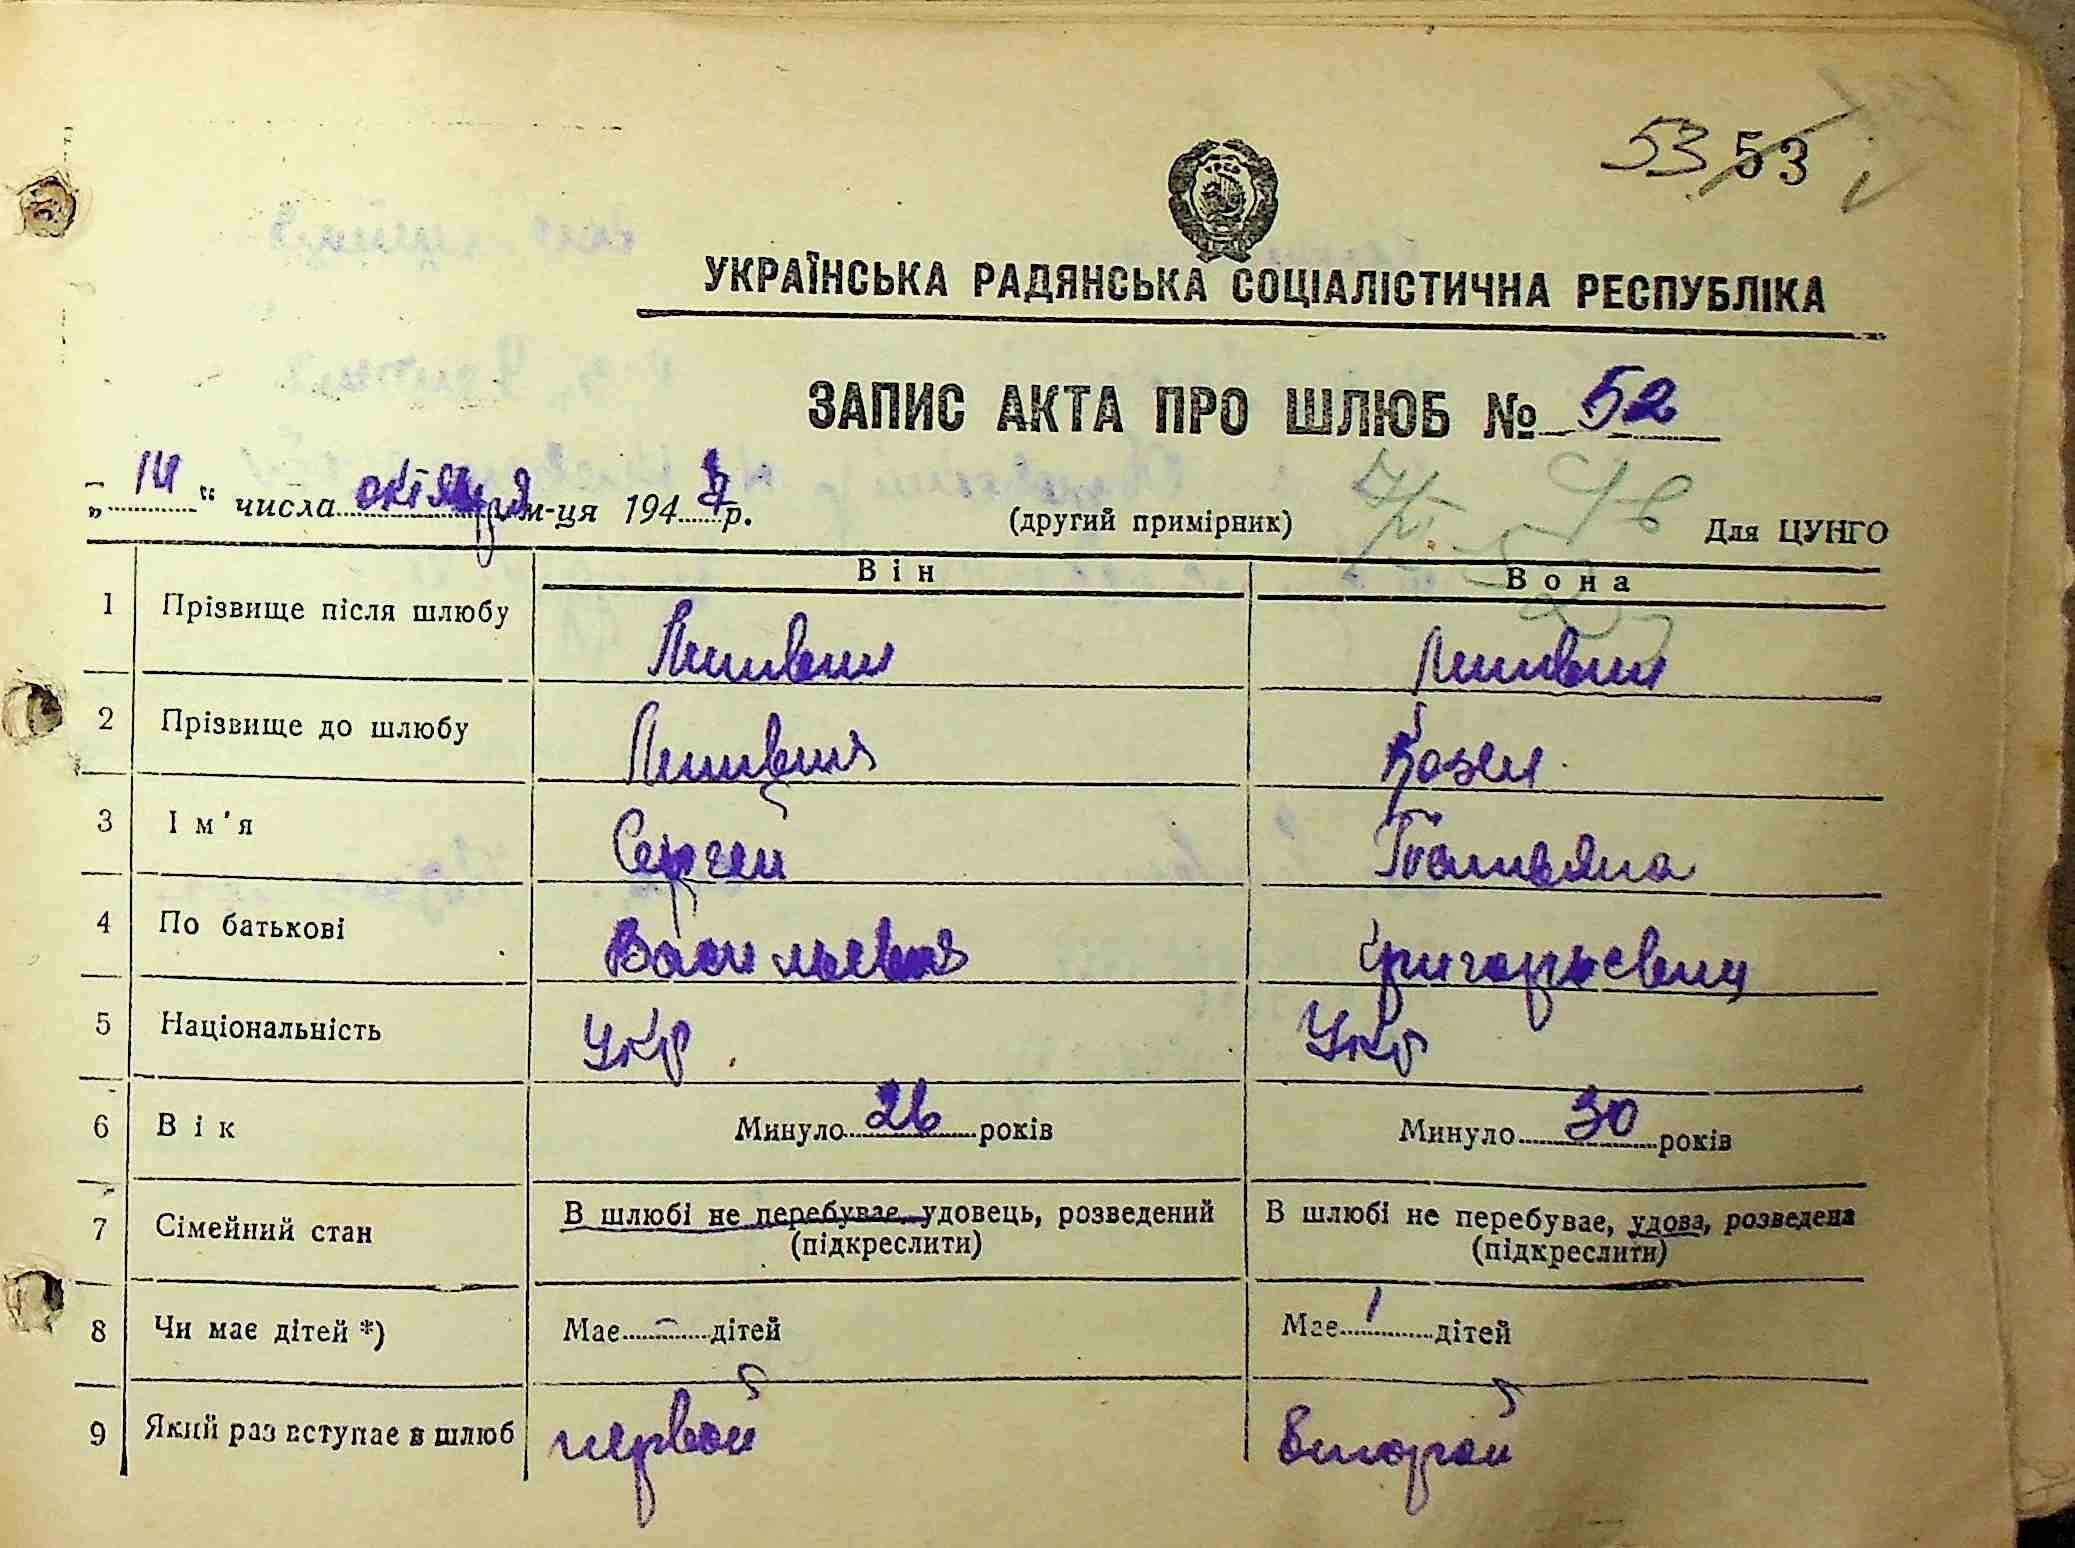 53 53
УКРАЇНСЬКА РАДЯНСЬКА СОЦІАЛІСТИЧНА РЕСПУБЛІКА
ЗАПИС АКТА ПРО ШЛЮБ № 52
„14“ числа октября м-ця 194 р. (другий примірник) Для ЦУНГО
Він Вона
1 Прізвище після шлюбу Литвин Литвин
2 Прізвище до шлюбу Литвин Козел
3 Ім'я Сергей Татьяна
4 По батькові Васильевич Григорьевна
5 Національність Укр Укр
6 Вік Минуло 26 років Минуло 30 років
7 Сімейний стан В шлюбі не перебуває, удовець, розведений В шлюбі не перебуває, удова, розведена
(підкреслити) (підкреслити)
8 Чи має дітей *) Має – дітей Має 1 дітей
9 Який раз вступає в шлюб первой второй